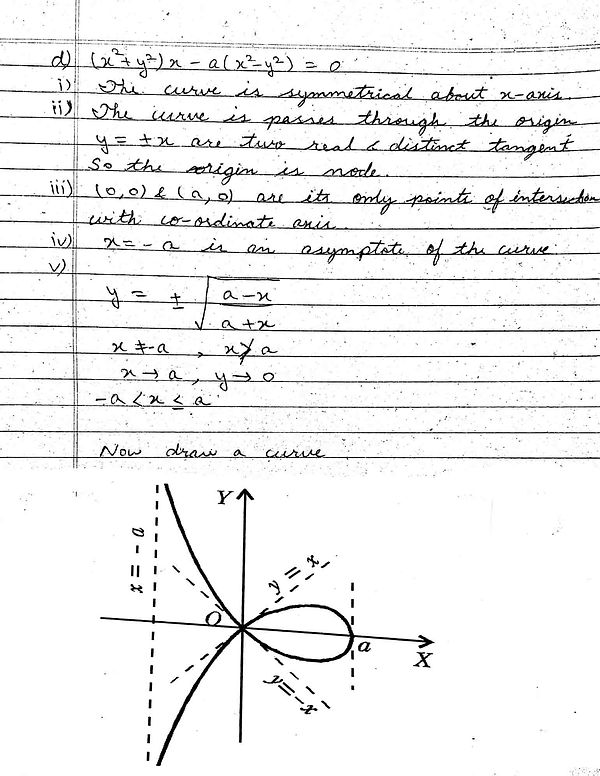 d) (x²+y²)x - a(x²-y²) = 0
i) The curve is symmetrical about x-axis.
ii) The curve is passes through the origin
y = ±x are two real & distinct tangent
So the origin is node.
iii) (0,0) & (a,0) are its only points of intersection
with co-ordinate axis.
iv) x = -a is an asymptote of the curve
v)
y = ± √((a-x)/(a+x))
x ≠ -a , x ≯ a
x → a , y → 0
-a < x ≤ a
Now draw a curve
Y
x = - a
y = x
O
a
X
y = -x